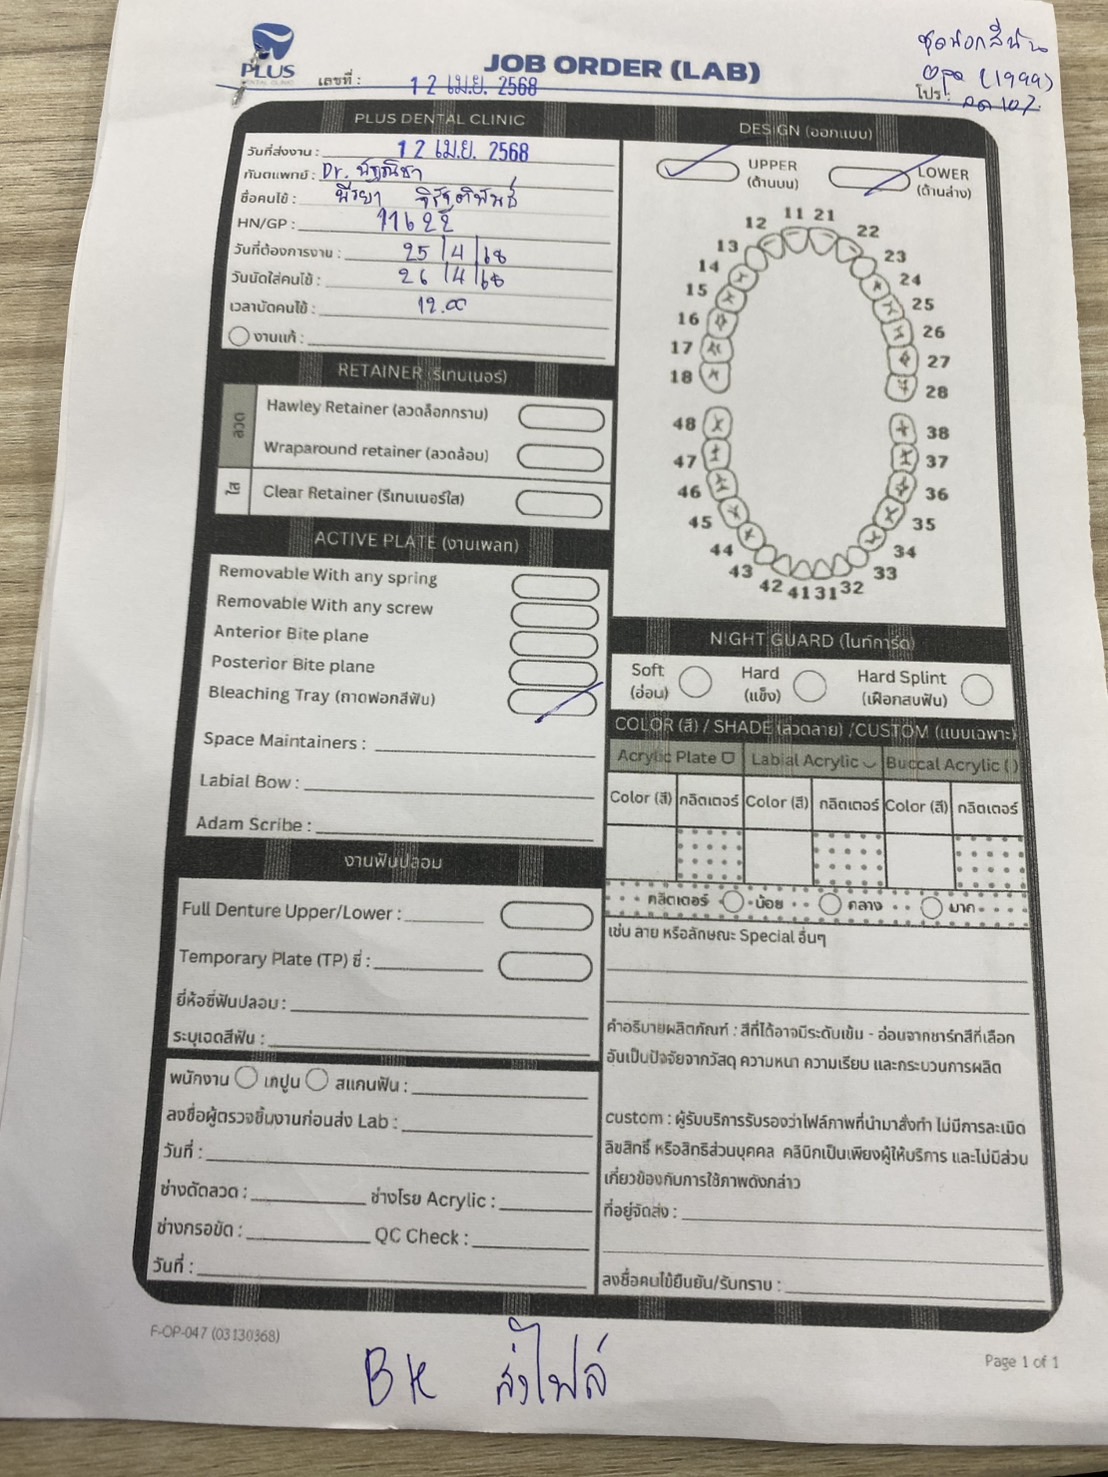 PLUS
DENTAL CLINIC
JOB ORDER (LAB)
เลขที่ : 12 เม.ย. 2568
ชุดฟอกสีฟัน
(1999)
โปร : ลด 10%
PLUS DENTAL CLINIC
วันที่ส่งงาน : 12 เม.ย. 2568
ทันตแพทย์ : Dr. ณัฐณิชา
ชื่อคนไข้ :
HN/GP : 11622
วันที่ต้องการงาน : 25/4/68
วันนัดใส่คนไข้ : 26/4/68
เวลานัดคนไข้ : 12.00
งานแก้ :
RETAINER (รีเทนเนอร์)
ลวด
Hawley Retainer (ลวดล็อกกราม)
Wraparound retainer (ลวดล้อม)
ใส
Clear Retainer (รีเทนเนอร์ใส)
ACTIVE PLATE (งานเพลท)
Removable With any spring
Removable With any screw
Anterior Bite plane
Posterior Bite plane
Bleaching Tray (ถาดฟอกสีฟัน)
Space Maintainers :
Labial Bow :
Adam Scribe :
งานฟันปลอม
Full Denture Upper/Lower :
Temporary Plate (TP) ซี่ :
ยี่ห้อซี่ฟันปลอม :
ระบุเฉดสีฟัน :
พนักงาน เทปูน สแกนฟัน :
ลงชื่อผู้ตรวจชิ้นงานก่อนส่ง Lab :
วันที่ :
ช่างดัดลวด : ช่างโรย Acrylic :
ช่างกรอขัด : QC Check :
วันที่ :
DESIGN (ออกแบบ)
UPPER (ด้านบน)
LOWER (ด้านล่าง)
11 21
12 22
13 23
14 24
15 25
16 26
17 27
18 28
48 38
47 37
46 36
45 35
44 34
43 33
42 41 31 32
NIGHT GUARD (ไนท์การ์ด)
Soft Hard Hard Splint
(อ่อน) (แข็ง) (เฝือกสบฟัน)
COLOR (สี) / SHADE (ลวดลาย) /CUSTOM (แบบเฉพาะ)
Acrylic Plate Labial Acrylic Buccal Acrylic ( )
Color (สี) กลิตเตอร์ Color (สี) กลิตเตอร์ Color (สี) กลิตเตอร์
กลิตเตอร์ น้อย กลาง มาก
เช่น ลาย หรือลักษณะ Special อื่นๆ
คำอธิบายผลิตภัณฑ์ : สีที่ได้อาจมีระดับเข้ม - อ่อนจากชาร์ทสีที่เลือก
อันเป็นปัจจัยจากวัสดุ ความหนา ความเรียบ และกระบวนการผลิต
custom : ผู้รับบริการรับรองว่าไฟล์ภาพที่นำมาสั่งทำ ไม่มีการละเมิด
ลิขสิทธิ์ หรือสิทธิส่วนบุคคล คลินิกเป็นเพียงผู้ให้บริการ และไม่มีส่วน
เกี่ยวข้องกับการใช้ภาพดังกล่าว
ที่อยู่จัดส่ง :
ลงชื่อคนไข้ยืนยัน/รับทราบ :
F-OP-047 (03130368)
Page 1 of 1
BK ส่งไฟล์